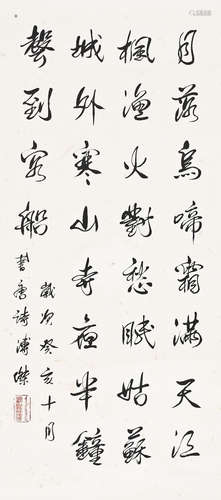 月落烏啼霜滿天江
楓漁火對愁眠姑蘇
城外寒山寺夜半鐘
聲到客船
歲次癸亥十月
書唐詩溥傑